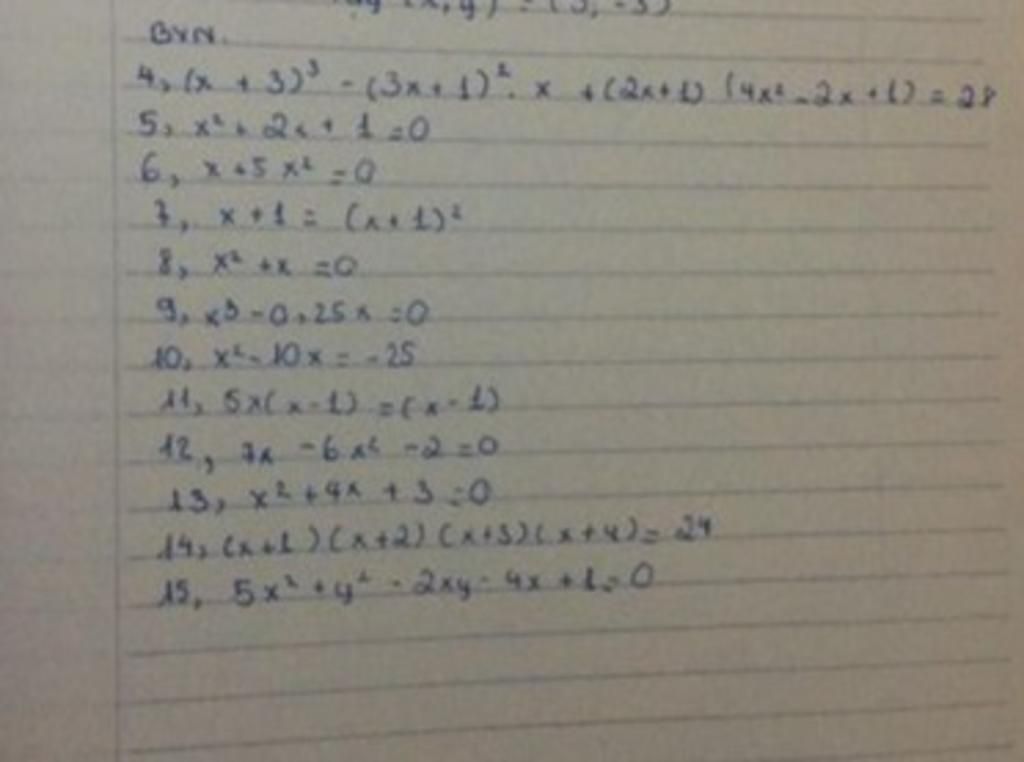 (x, y) = (3, -3)
BVN.
4, (x + 3)³ - (3x + 1)². x + (2x+1) (4x² - 2x + 1) = 28
5, x² + 2x + 1 = 0
6, x + 5x² = 0
7, x + 1 = (x + 1)²
8, x² + x = 0
9, x³ - 0,25x = 0
10, x² - 10x = -25
11, 5x(x - 1) = (x - 1)
12, 7x - 6x² - 2 = 0
13, x² + 4x + 3 = 0
14, (x+1)(x+2)(x+3)(x+4) = 24
15, 5x² + y² - 2xy - 4x + 1 = 0